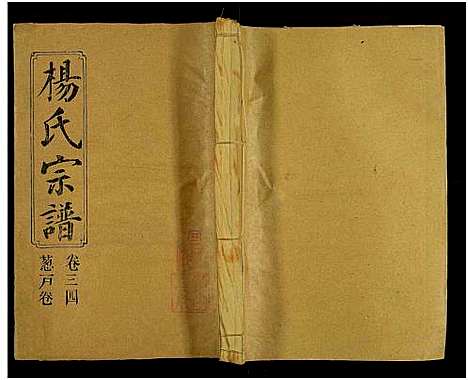 楊氏宗譜
卷三四
葱戶卷